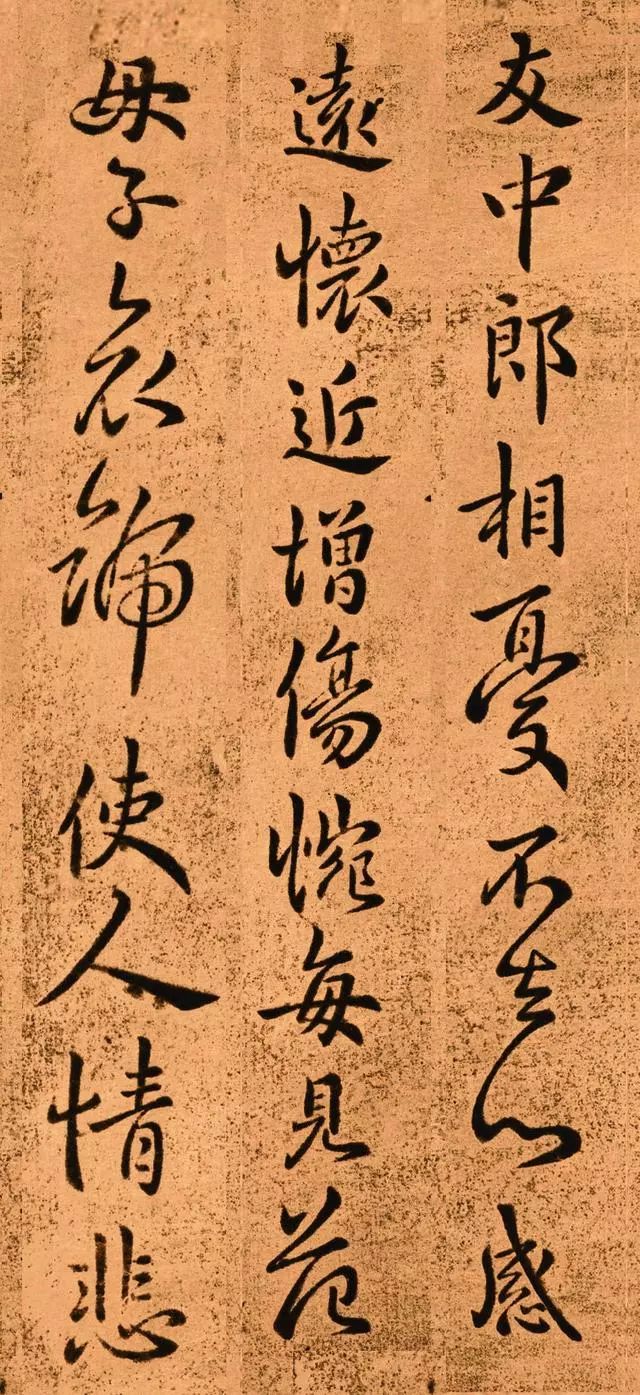 友中郎相憂不去心感
遠懷近增傷惋每見范
母子哀號使人情悲